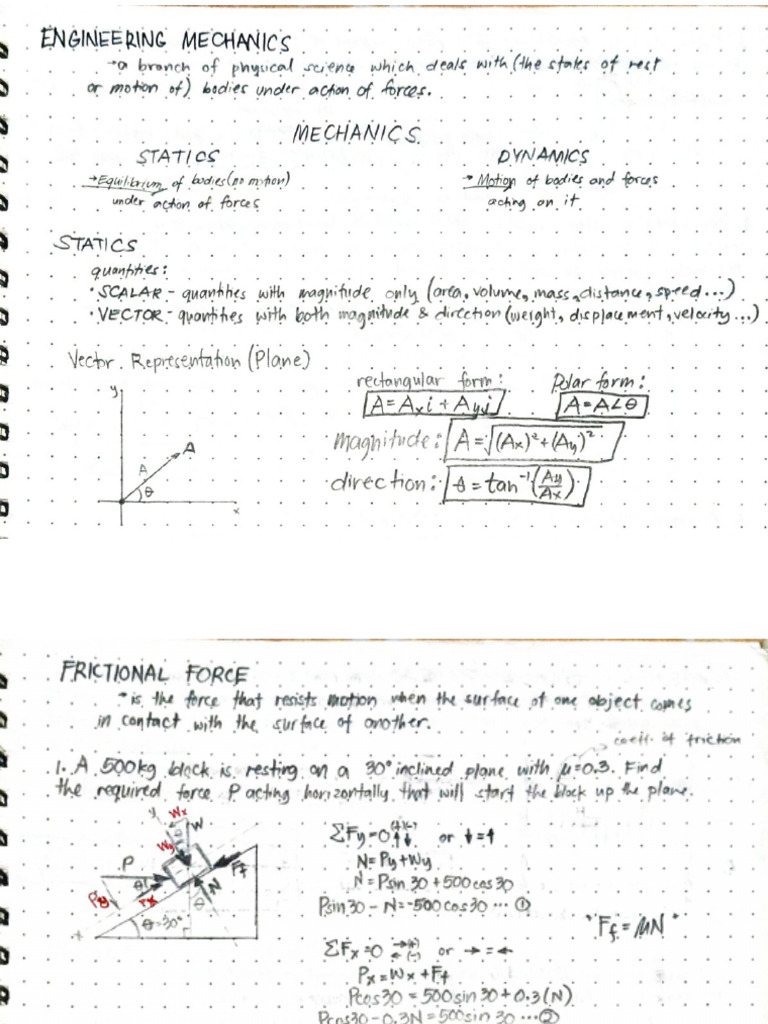 ENGINEERING MECHANICS
→a branch of physical science which deals with (the states of rest
or motion of) bodies under action of forces.
MECHANICS
STATICS
→Equilibrium of bodies (no motion)
under action of forces
DYNAMICS
→ Motion of bodies and forces
acting on it
STATICS
quantities:
• SCALAR - quantities with magnitude only (area, volume, mass, distance, speed...)
• VECTOR - quantities with both magnitude & direction (weight, displacement, velocity...)
Vector Representation (Plane)
y
A
A
θ
x
rectangular form:
A = Axi + Ayj
Polar form:
A = A∠θ
magnitude: A = √(Ax)² + (Ay)²
direction: θ = tan⁻¹(Ay/Ax)
FRICTIONAL FORCE
→is the force that resists motion when the surface of one object comes
in contact with the surface of another.
coeff. of friction
1. A 500kg block is resting on a 30° inclined plane with μ=0.3. Find
the required force P acting horizontally that will start the block up the plane.
y
Wx
θ
W
Wy
P
Ff
θ
Py
Px
N
θ
θ=30°
x
ΣFy=0 (+)(-) ↑↓ or ↓=↑
N = Py + Wy
N = Psin 30 + 500 cos 30
Psin 30 - N = -500 cos 30 ... ①
"Ff = μN"
ΣFx=0 →(+) ←(-) or → = ←
Px = Wx + Ff
Pcos 30 = 500 sin 30 + 0.3(N)
Pcos30 - 0.3N = 500 sin 30 ... ②